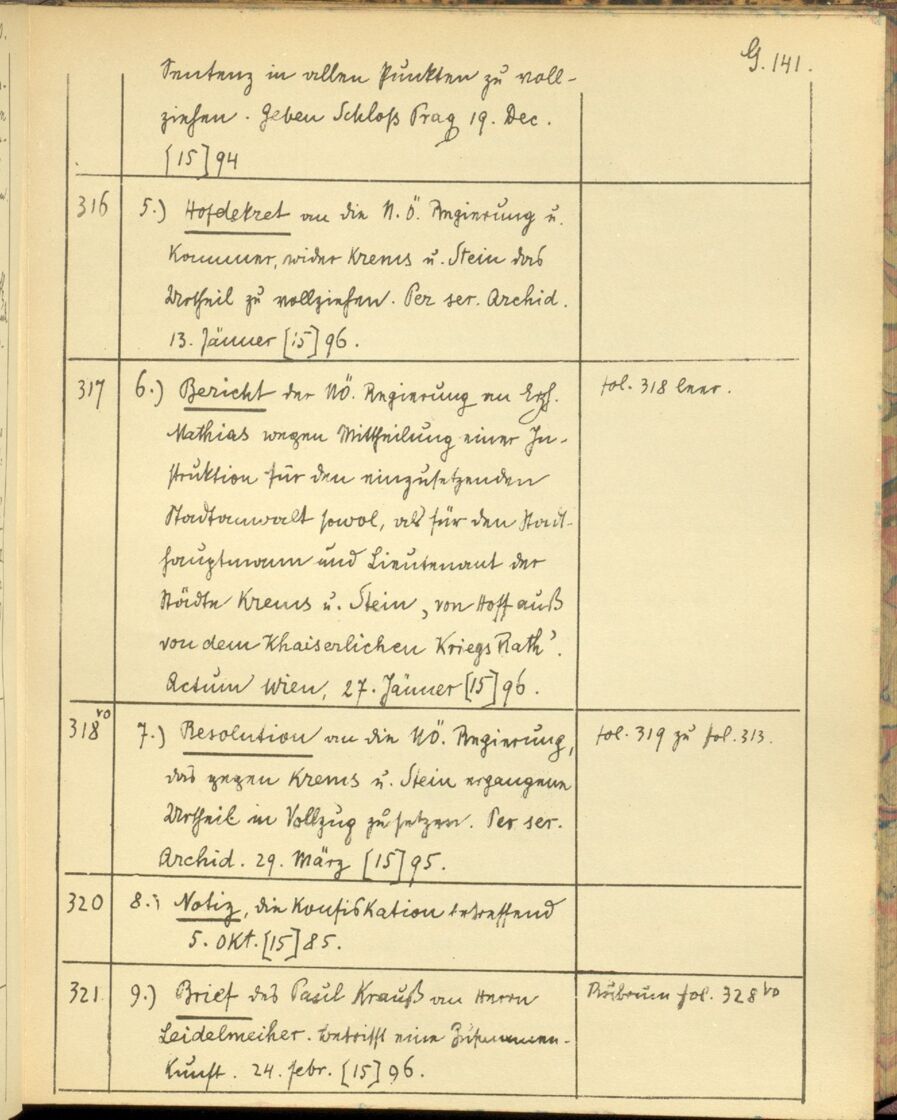 G. 141.
Sentenz in allen Punkten zu voll-
ziehen. Geben Schloß Prag 19. Dec.
[15]94
316 5.) Hofdekret an die N. Ö. Regierung u.
Kammer, wider Krems u. Stein das
Urtheil zu vollziehen. Per ser. Archid.
13. Jänner [15]96.
317 6.) Bericht der NÖ. Regierung an Erzh. fol. 318 leer.
Mathias wegen Mittheilung einer In-
struktion für den einzusetzenden
Stadtanwalt sowol, als für den Stadt-
hauptmann und Lieutenant der
Städte Krems u. Stein, von Hoff auß
von dem Khaiserlichen Kriegs Rath'.
Actum Wien, 27. Jänner [15]96.
318 vo 7.) Resolution an die NÖ. Regierung, fol. 319 zu fol. 313.
das gegen Krems u. Stein ergangene
Urtheil in Vollzug zu setzen. Per ser.
Archid. 29. März [15]95.
320 8.) Notiz, die Konfiskation betreffend
5. Okt. [15]85.
321 9.) Brief des Paul Krauß an Herrn fol. 328 vo
Leidelmeiher. Betrifft eine Zusammen-
kunft. 24. Febr. [15]96.